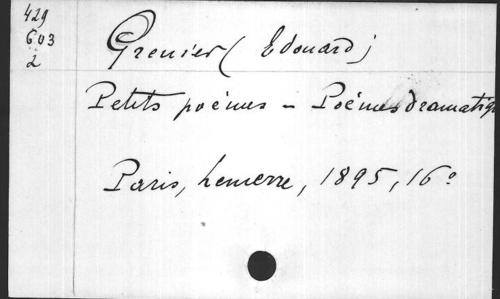 429
603
2
Grenier (Edouard)
Petits poèmes - Poèmes dramatiq
Paris, Lemerre, 1895, 16°